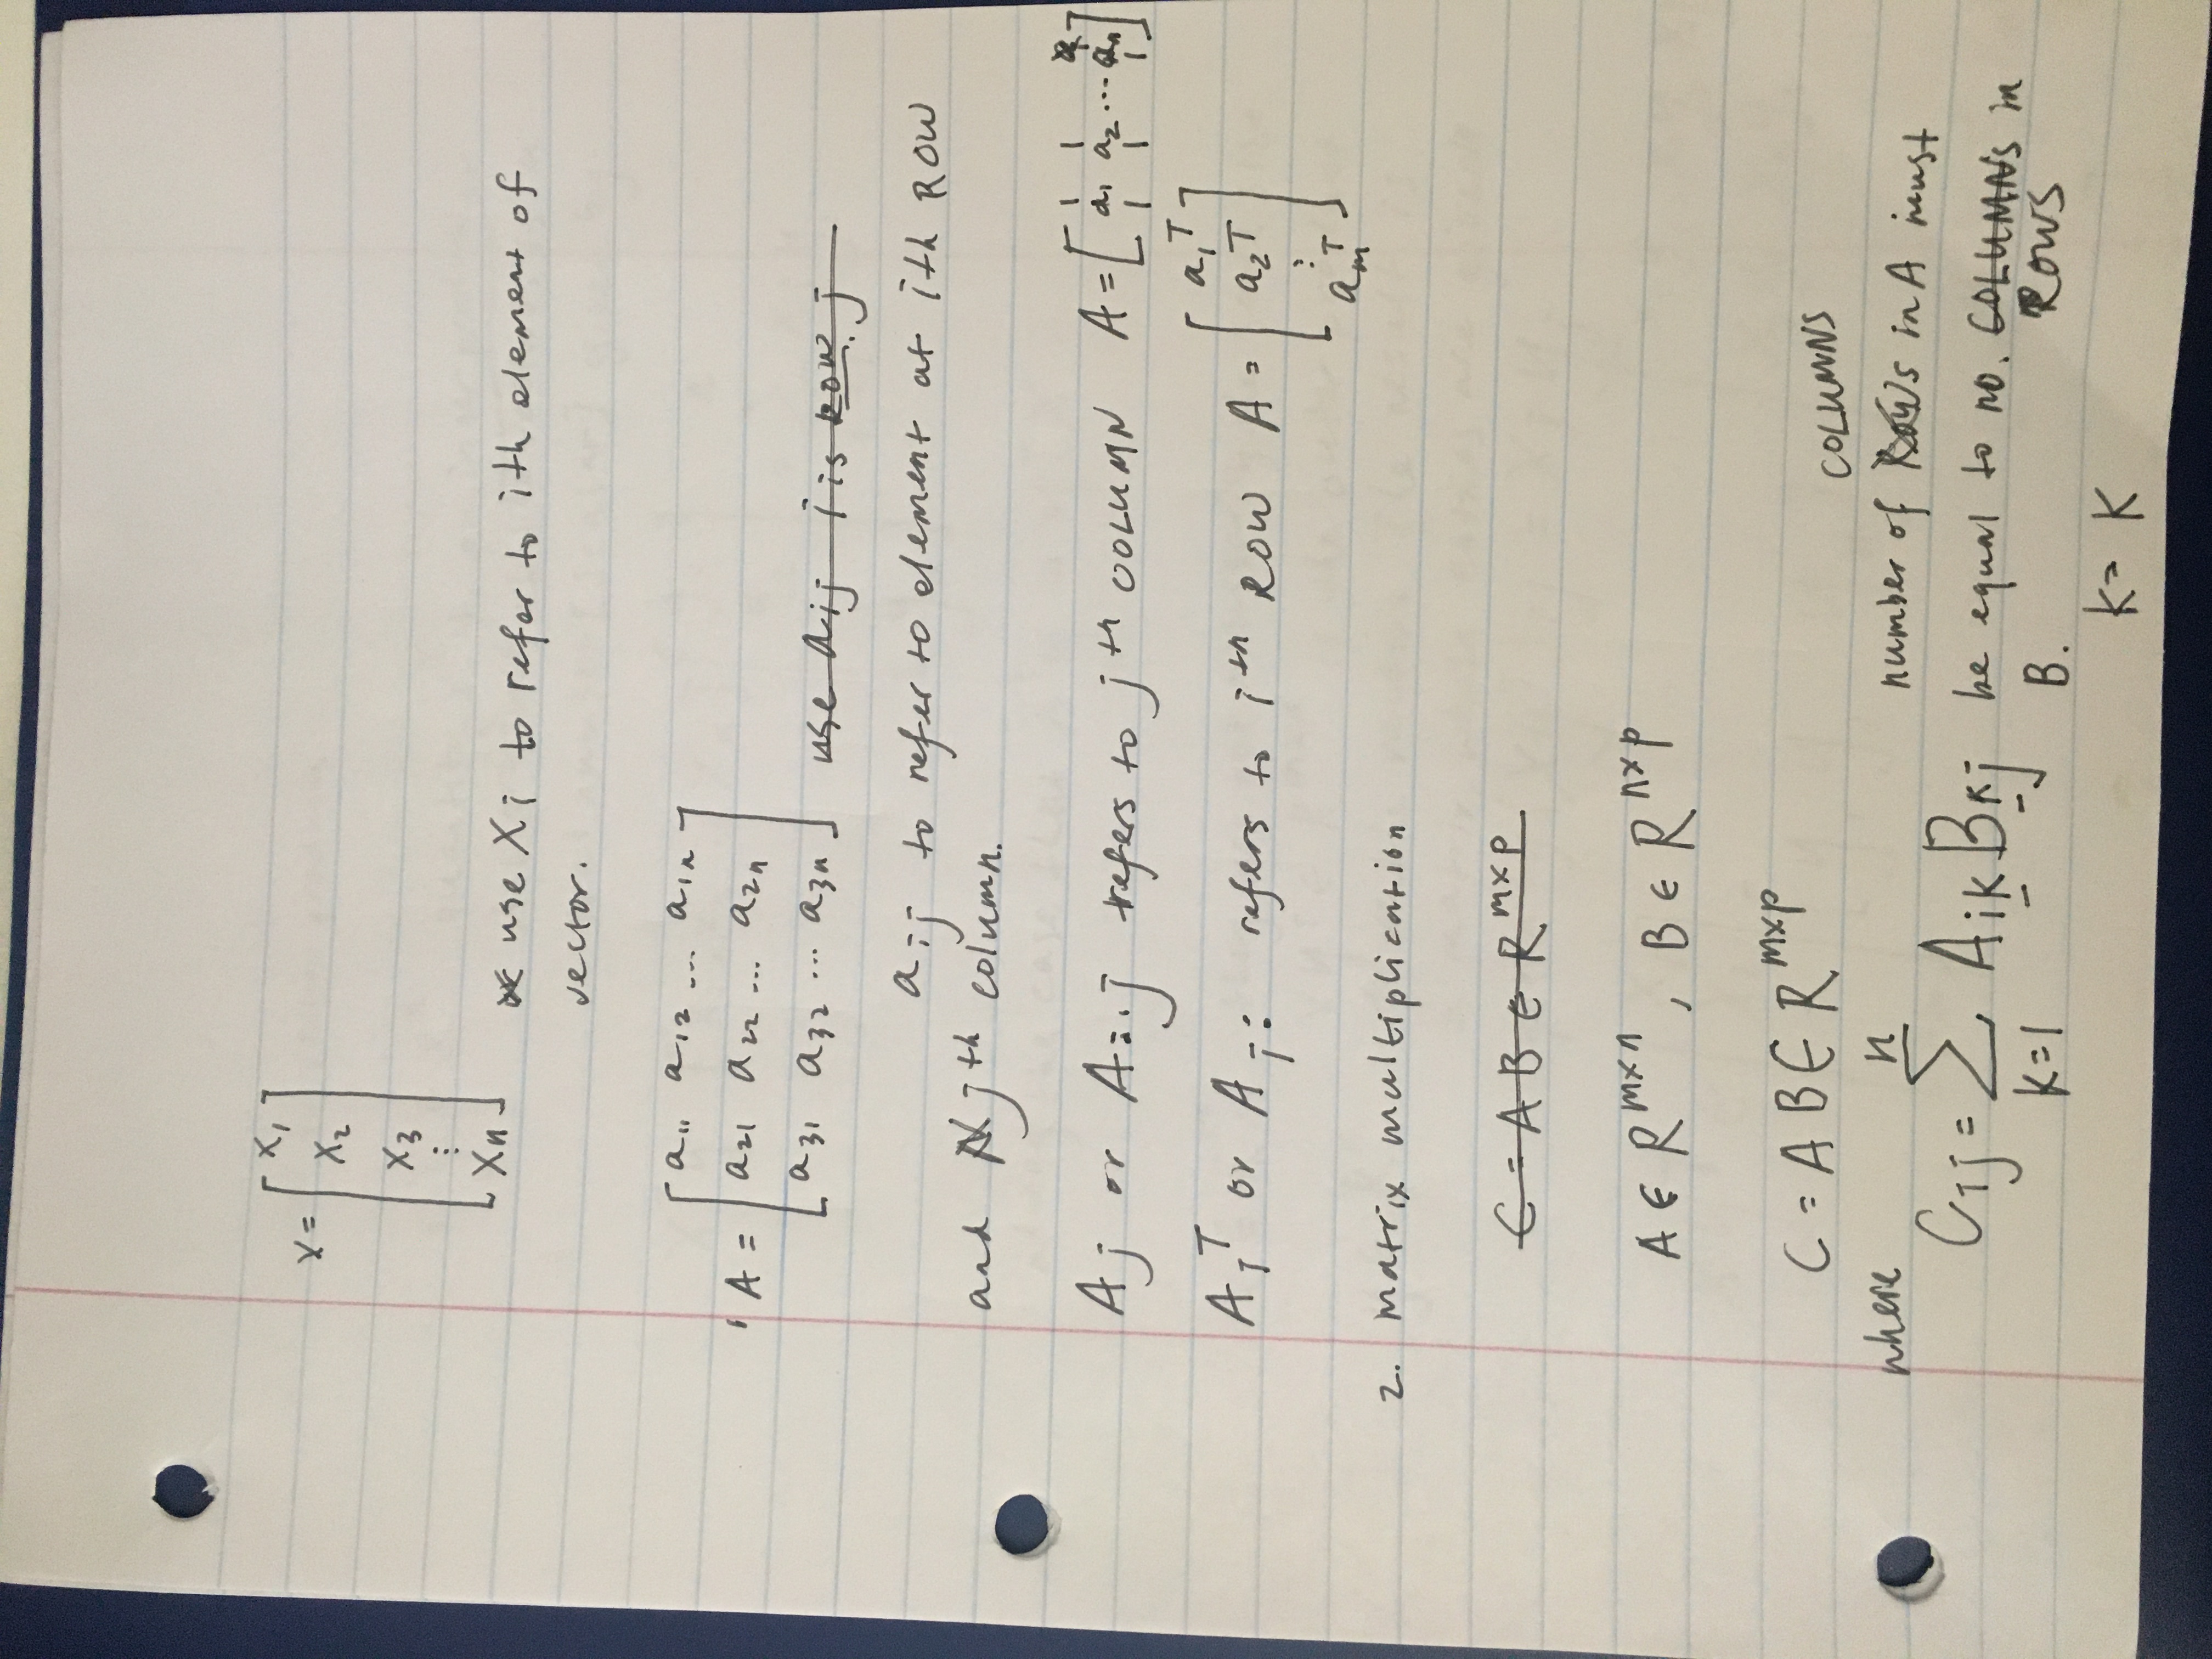 x = [ x₁
x₂
x₃
⋮
xₙ ]
use Xi to refer to ith element of
vector.
A = [ a₁₁ a₁₂ ... a₁ₙ
a₂₁ a₂₂ ... a₂ₙ
a₃₁ a₃₂ ... a₃ₙ ] ~~use aij i is ROW. j~~
aij to refer to element at ith ROW
and jth column.
Aj or A:,j refers to jth COLUMN A = [ | | |
a₁ a₂ ... aₙ
| | | ]
Aiᵀ or Ai: refers to ith ROW A = [ a₁ᵀ
a₂ᵀ
⋮
aₘᵀ ]
2. matrix multiplication
~~C = AB ∈ R^(m×p)~~
A ∈ R^(m×n), B ∈ R^(n×p)
C = AB ∈ R^(m×p)
where
Cij = Σ_(k=1)^n Aik Bkj
COLUMNS
number of ~~ROWs~~ in A must
be equal to no. ~~COLUMNs~~ in
B. ROWS
k = K